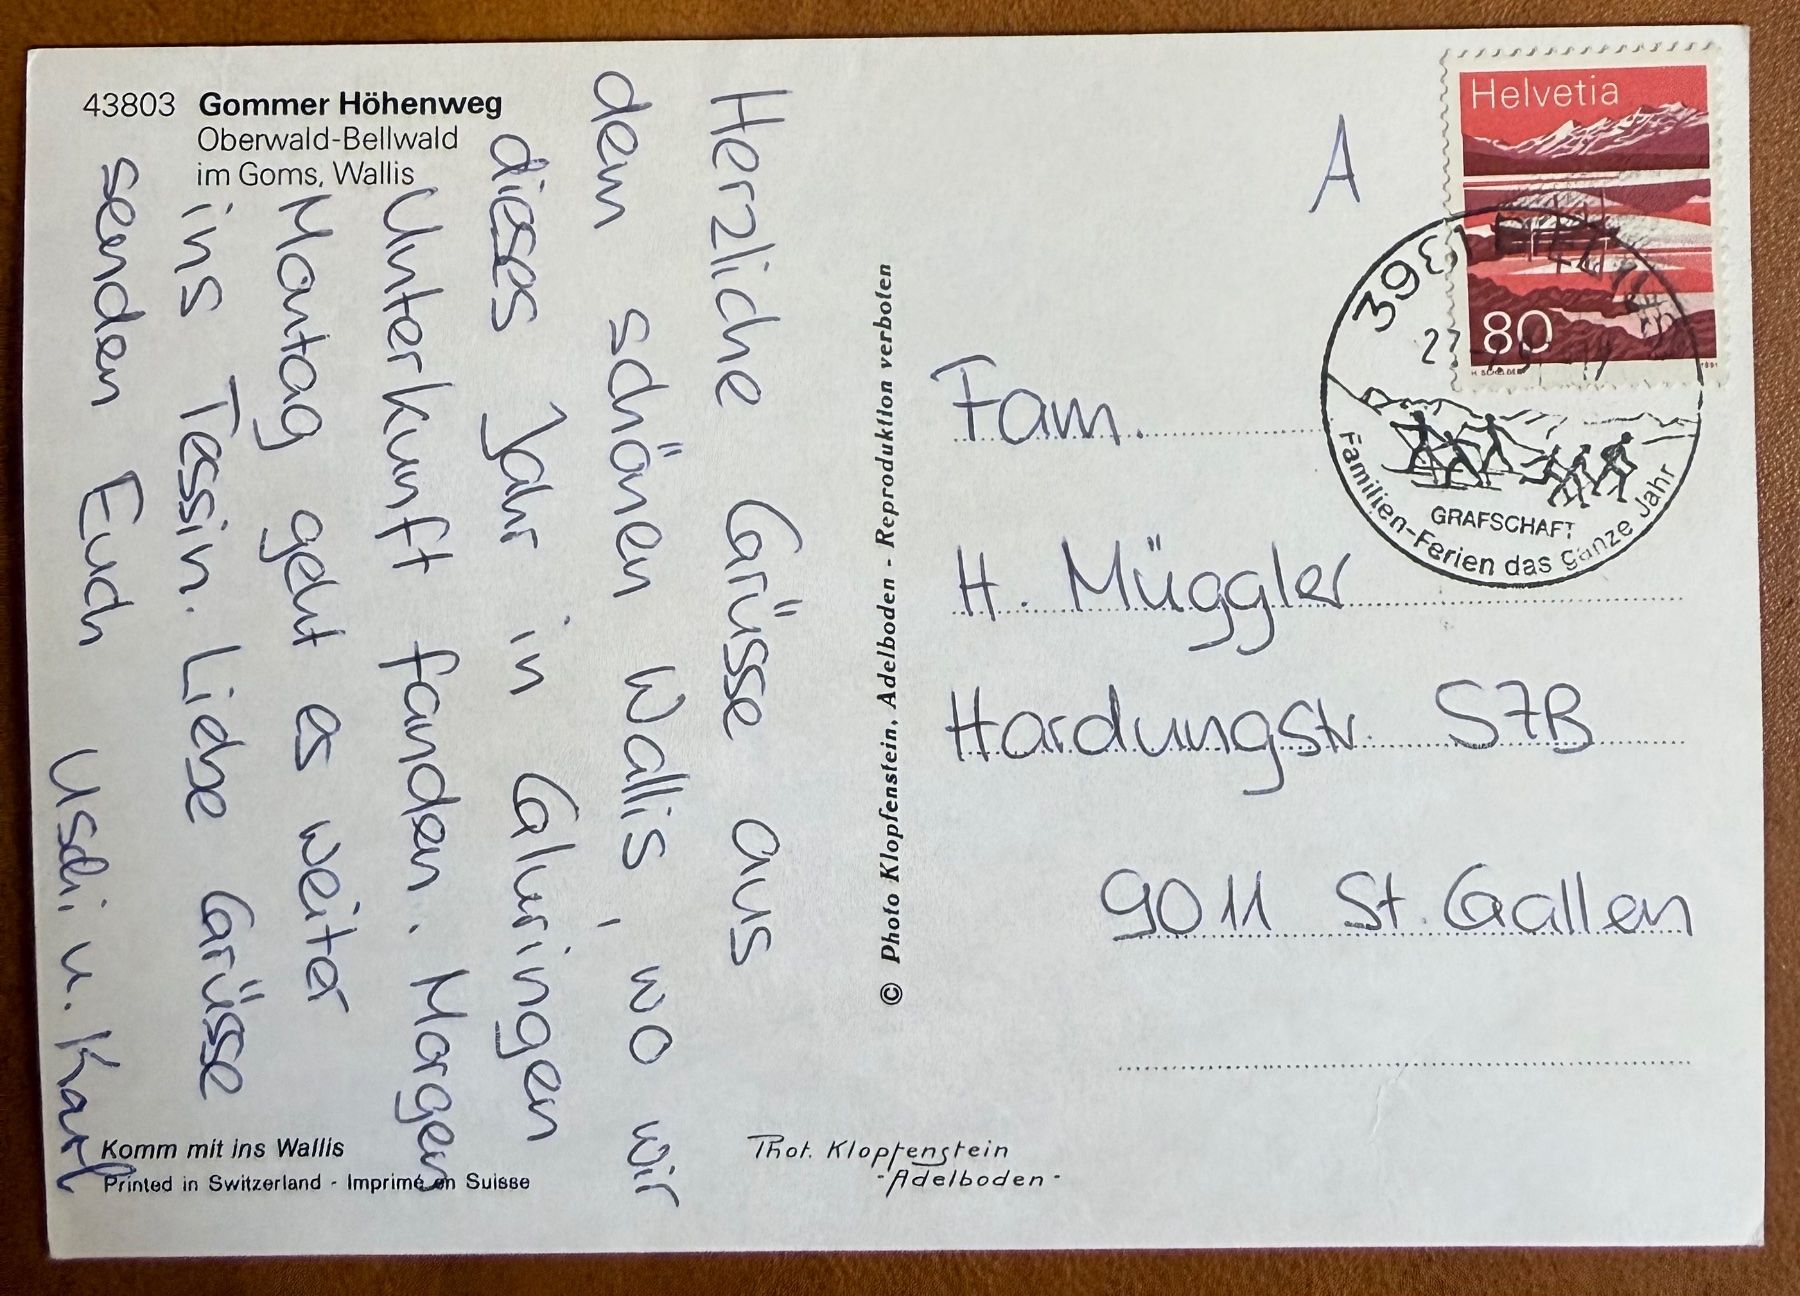 43803 Gommer Höhenweg
Oberwald-Bellwald
im Goms, Wallis
Herzliche Grüsse aus
dem schönen Wallis, wo wir
dieses Jahr in Gluringen
Unterkunft fanden. Morgen
Montag geht es weiter
ins Tessin. Liebe Grüsse
senden Euch Uschi u. Karl
Komm mit ins Wallis
Printed in Switzerland - Imprimé en Suisse
© Photo Klopfenstein, Adelboden - Reproduktion verboten
Phot. Klopfenstein
-Adelboden-
A
Helvetia
80
GRAFSCHAFT
Familien-Ferien das ganze Jahr
Fam.
H. Müggler
Hardungstr. 57B
9011 St. Gallen